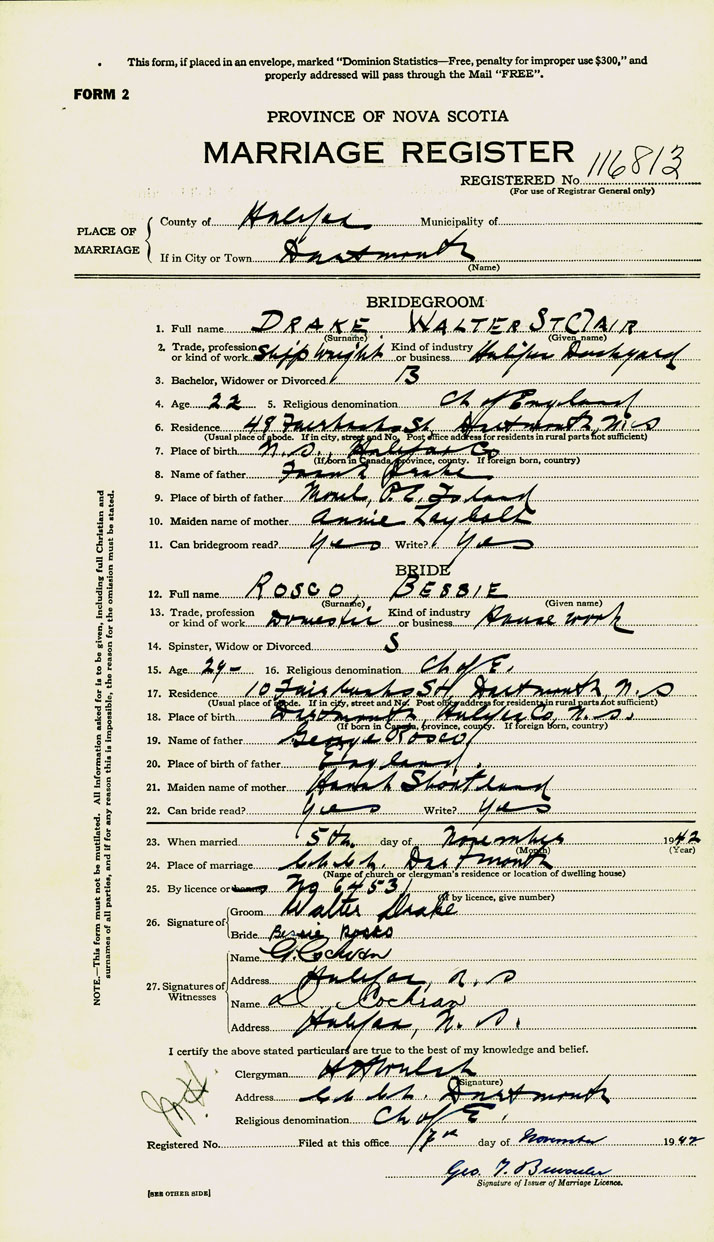 This form, if placed in an envelope, marked "Dominion Statistics—Free, penalty for improper use $300," and
properly addressed will pass through the Mail "FREE".
FORM 2
PROVINCE OF NOVA SCOTIA
MARRIAGE REGISTER
REGISTERED No. 116813
(For use of Registrar General only)
PLACE OF MARRIAGE
County of Halifax Municipality of
If in City or Town Dartmouth
(Name)
BRIDEGROOM
1. Full name DRAKE WALTER ST CLAIR
(Surname) (Given name)
2. Trade, profession or kind of work Shipwright Kind of industry or business Halifax Dockyard
3. Bachelor, Widower or Divorced B
4. Age 22 5. Religious denomination Ch of England
6. Residence 49 Fairbanks St, Dartmouth, N.S
(Usual place of abode. If in city, street and No. Post office address for residents in rural parts not sufficient)
7. Place of birth N.S., Halifax Co
(If born in Canada, province, county. If foreign born, country)
8. Name of father Frank Drake
9. Place of birth of father P.E. Island
10. Maiden name of mother Annie
11. Can bridegroom read? Yes Write? Yes
BRIDE
12. Full name ROSCO BESSIE
(Surname) (Given name)
13. Trade, profession or kind of work Domestic Kind of industry or business House work
14. Spinster, Widow or Divorced S
15. Age 24- 16. Religious denomination Ch of E.
17. Residence 10 Fairbanks St, Dartmouth, N.S
(Usual place of abode. If in city, street and No. Post office address for residents in rural parts not sufficient)
18. Place of birth Dartmouth Halifax Co, N.S.
(If born in Canada, province, county. If foreign born, country)
19. Name of father George Rosco
20. Place of birth of father England.
21. Maiden name of mother Hannah Shortland
22. Can bride read? Yes Write? Yes
23. When married 5th day of November 1942
(Month) (Year)
24. Place of marriage Dartmouth
(Name of church or clergyman's residence or location of dwelling house)
25. By licence or banns No 6453
(If by licence, give number)
26. Signature of
Groom Walter Drake
Bride Bessie Rosko
27. Signatures of Witnesses
Name
Address Halifax, N.S
Name D. Cochran
Address Halifax, N.S.
I certify the above stated particulars are true to the best of my knowledge and belief.
Clergyman
(Signature)
Address Dartmouth
Religious denomination Ch of E.
Registered No. Filed at this office day of November 1942
Geo. T.
Signature of Issuer of Marriage Licence.
[SEE OTHER SIDE]
NOTE.—This form must not be mutilated. All information asked for is to be given, including full Christian and
surnames of all parties, and if for any reason this is impossible, the reason for the omission must be stated.